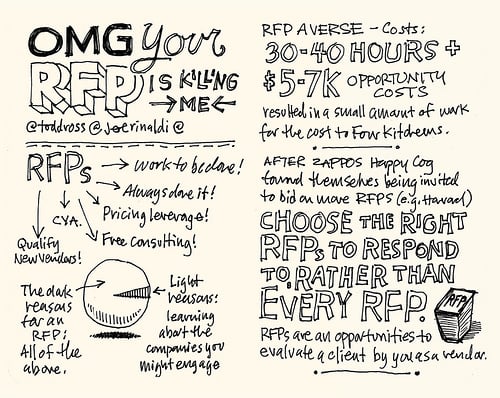 OMG Your
RFP IS KILLING
ME
@toddross @joerinaldi @
RFPs
Work to be done!
Always done it!
Pricing leverage!
Free Consulting!
CYA.
Qualify
New Vendors!
The dark
reasons
for an
RFP:
All of the
above.
Light
reasons:
learning
about the
companies you
might engage
RFP AVERSE - Costs:
30-40 HOURS +
$5-7K OPPORTUNITY
COSTS
resulted in a small amount of work
for the cost to Four Kitchens.
AFTER ZAPPOS Happy Cog
found themselves being invited
to bid on more RFPs (e.g. Harvard)
CHOOSE THE RIGHT
RFPs TO RESPOND
TO, RATHER THAN
EVERY RFP.
RFP
RFPs are an opportunities to
evaluate a client by you as a vendor.